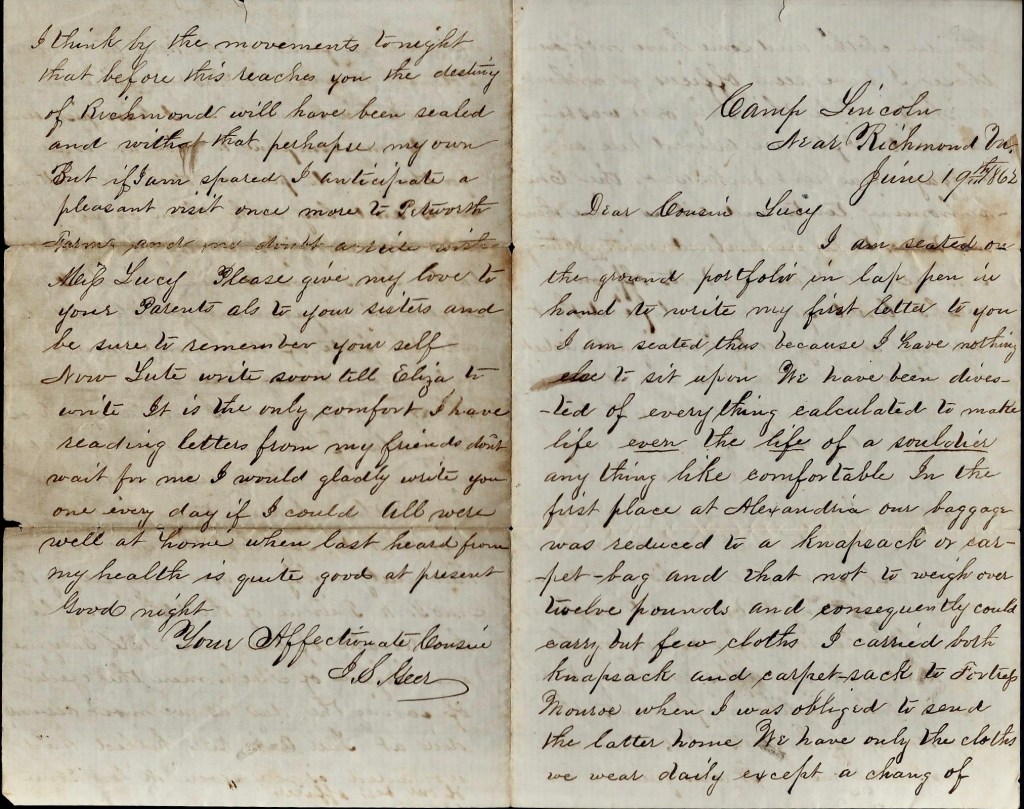 Camp Lincoln
Near Richmond Va.
June 19th 1862
Dear Cousin Lucy
I am seated on
the ground portfolio in lap pen in
hand to write my first letter to you
I am seated thus because I have nothing
else to sit upon We have been dives-
-ted of everything calculated to make
life even the life of a souldier
any thing like comfortable In the
first place at Alexandria our baggage
was reduced to a knapsack or car-
-pet-bag and that not to weigh over
twelve pounds and consequently could
carry but few cloths I carried both
knapsack and carpet-sack to Fortress
Monroe when I was obliged to send
the latter home We have only the cloths
we wear daily except a chang of
I think by the movements tonight
that before this reaches you the destiny
of Richmond will have been sealed
and with that perhapse my own
But if I am spared I anticipate a
pleasant visit once more to Petworth
Farm and no doubt a ride with
Miss Lucy Please give my love to
your Parents als to your sisters and
be sure to remember your self
Now Lute write soon till Eliza to
write It is the only comfort I have
reading letters from my friends don't
wait for me I would gladly write you
one every day if I could All were
well at home when last heard from
my health is quite good at present
Good night
Your Affectionate Cousin
J. S. Geer